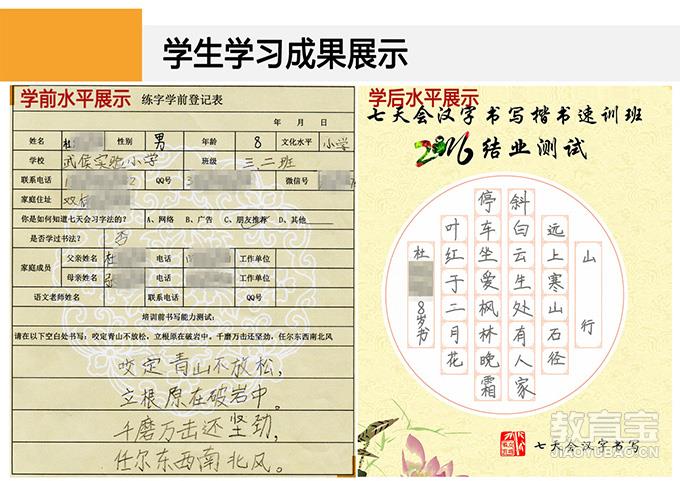 学生学习成果展示
学前水平展示
练字学前登记表
年 月 日
姓名 杜 性别 男 年龄 8 文化水平 小学
学校 武侯实验小学 班级 三、二班
联系电话 1 QQ号 3 微信号
家庭住址 双
你是如何知道七天会习字法的？ A、网络 B、广告 C、朋友推荐 D、其他
是否学过书法？ 否
家庭成员
父亲姓名 杜 电话 工作单位
母亲姓名 张 电话 工作单位
语文老师姓名 联系电话 QQ号
培训前书写能力测试：
请在以下空白处书写：咬定青山不放松，立根原在破岩中。千磨万击还坚劲，任尔东西南北风
咬定青山不放松，
立根原在破岩中。
千磨万击还坚劲，
任尔东西南北风。
学后水平展示
七天会汉字书写楷书速训班
2016结业测试
山行
远上寒山石径
斜白云生处有人家
停车坐爱枫林晚霜
叶红于二月花
杜 8岁书
七天会汉字书写
教育宝
JIAOYUBAO.CN